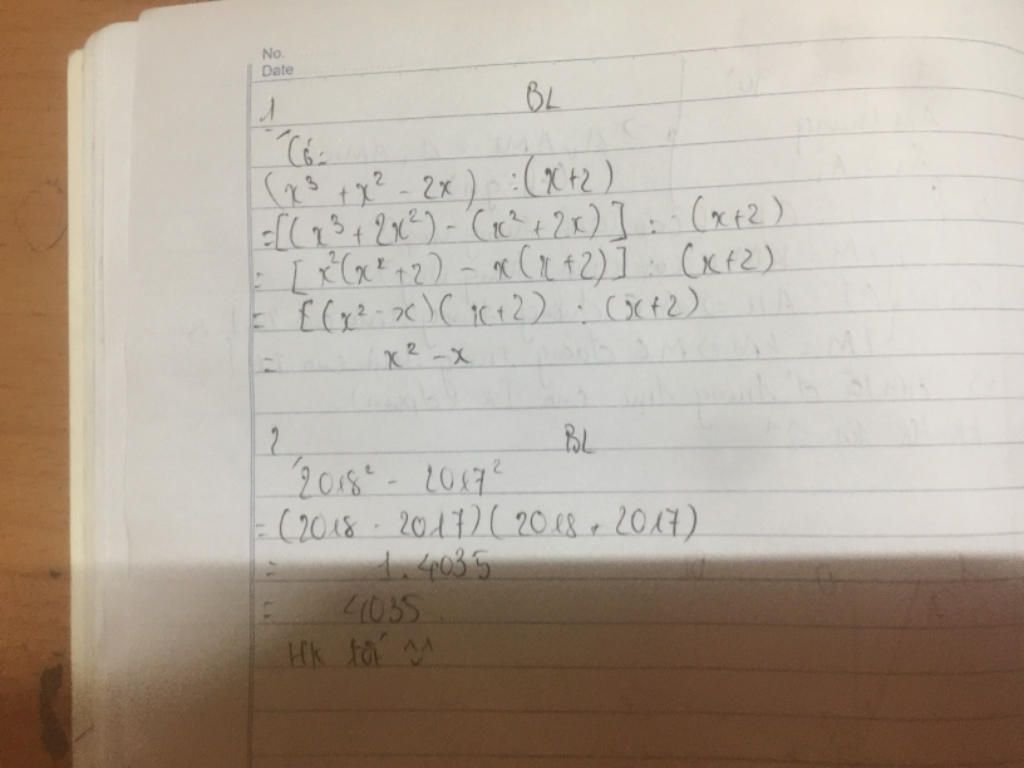 No.
Date
1 BL
Có:
(x³ + x² - 2x) : (x+2)
=[(x³ + 2x²) - (x² + 2x)] : (x+2)
= [x²(x² + 2) - x(x+2)] : (x+2)
= [(x² - x)(x+2) : (x+2)
= x² - x
2 BL
2018² - 2017²
= (2018 - 2017)(2018 + 2017)
= 1.4035
= 4035
Hk tốt ^^